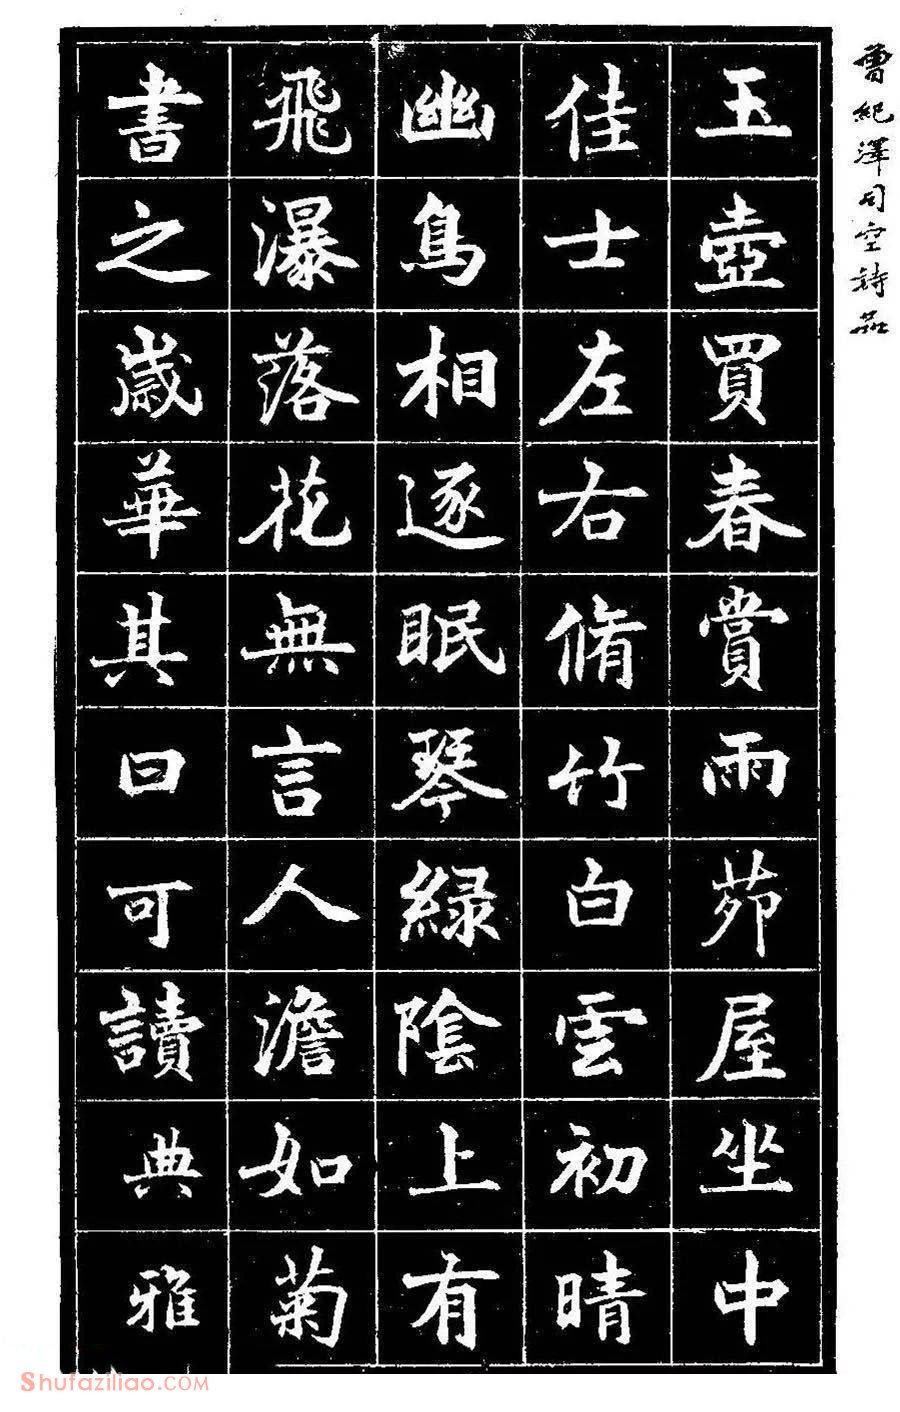 曾紀澤司空詩品
玉壺買春賞雨茆屋坐中
佳士左右脩竹白雲初晴
幽鳥相逐眠琴綠陰上有
飛瀑落花無言人澹如菊
書之歲華其曰可讀典雅
Shufaziliao.COM